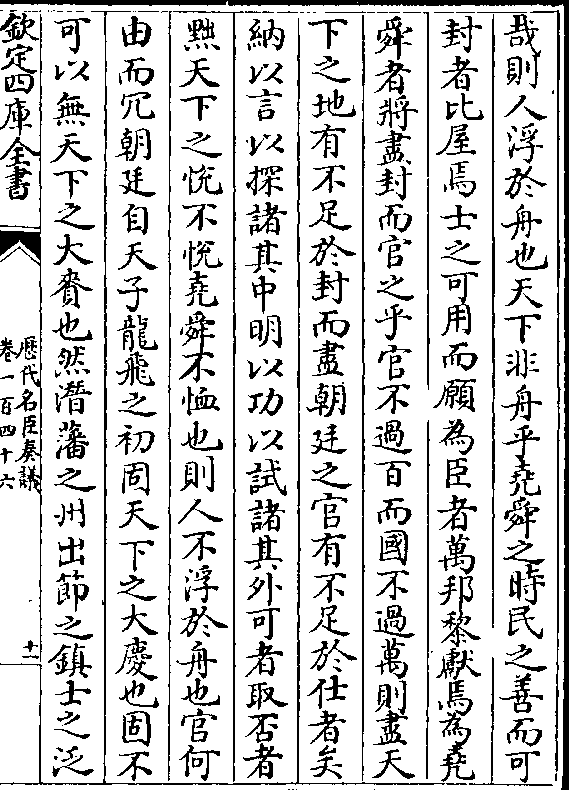 哉則人浮於舟也天下非舟乎堯舜之時民之善而可
封者比屋焉士之可用而願為臣者萬邦黎獻焉為堯
舜者將盡封而官之乎官不過百而國不過萬則盡天
下之地有不足於封而盡朝廷之官有不足於仕者矣
納以言以探諸其中明以功以試諸其外可者取否者
黜天下之悅不悅堯舜不恤也則人不浮於舟也官何
由而冗朝廷自天子龍飛之初固天下之大慶也固不
可以無天下之大賚也然潛藩之州出節之鎮士之泛
欽定四庫全書
歷代名臣奏議
卷一百四十六
十一